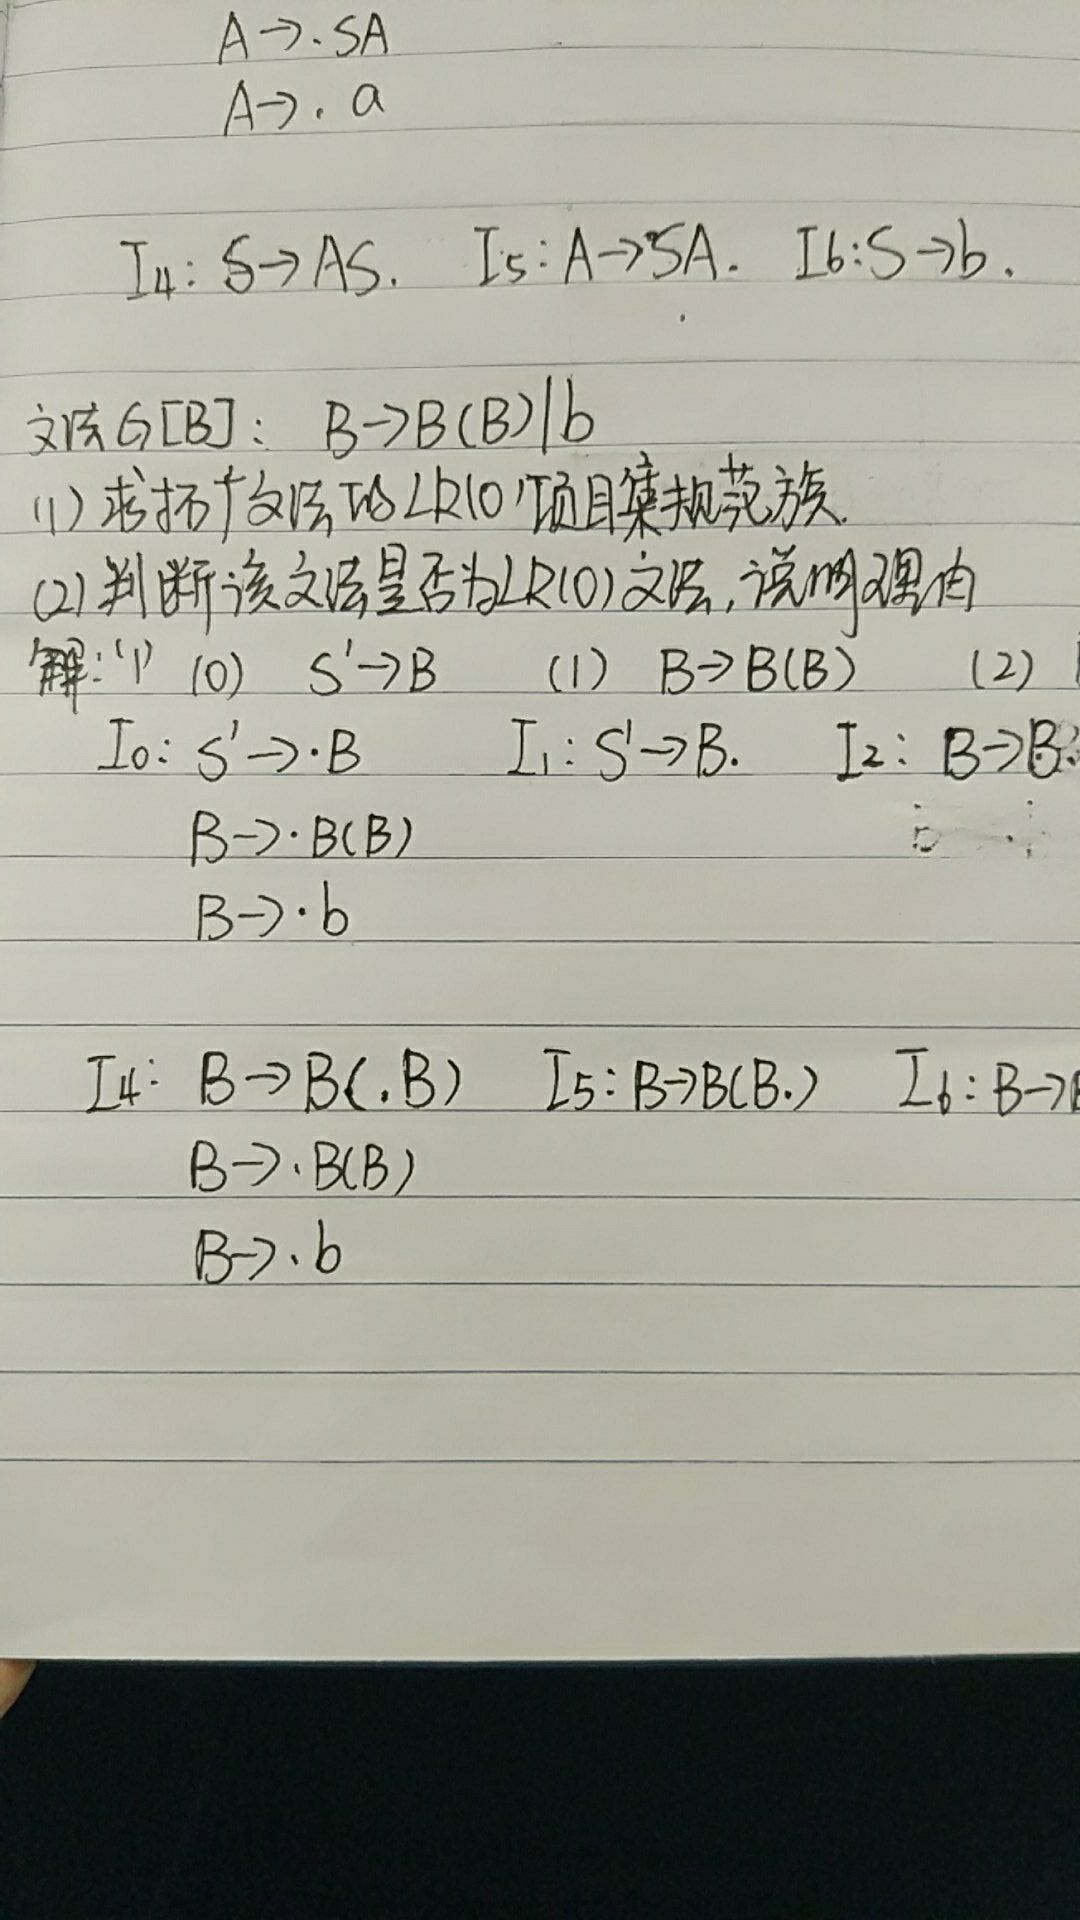 A→.SA
A→.a
I4: S→AS. I5:A→SA. I6:S→b.
文法G[B]: B→B(B)|b
(1)求拓广文法的LR(0)项目集规范族.
(2)判断该文法是否为LR(0)文法,说明理由
解:(1) (0) S'→B (1) B→B(B) (2)
I0: S'→·B I1: S'→B. I2: B→B.
B→·B(B)
B→·b
I4: B→B(.B) I5:B→B(B.) I6:B→B
B→.B(B)
B→.b